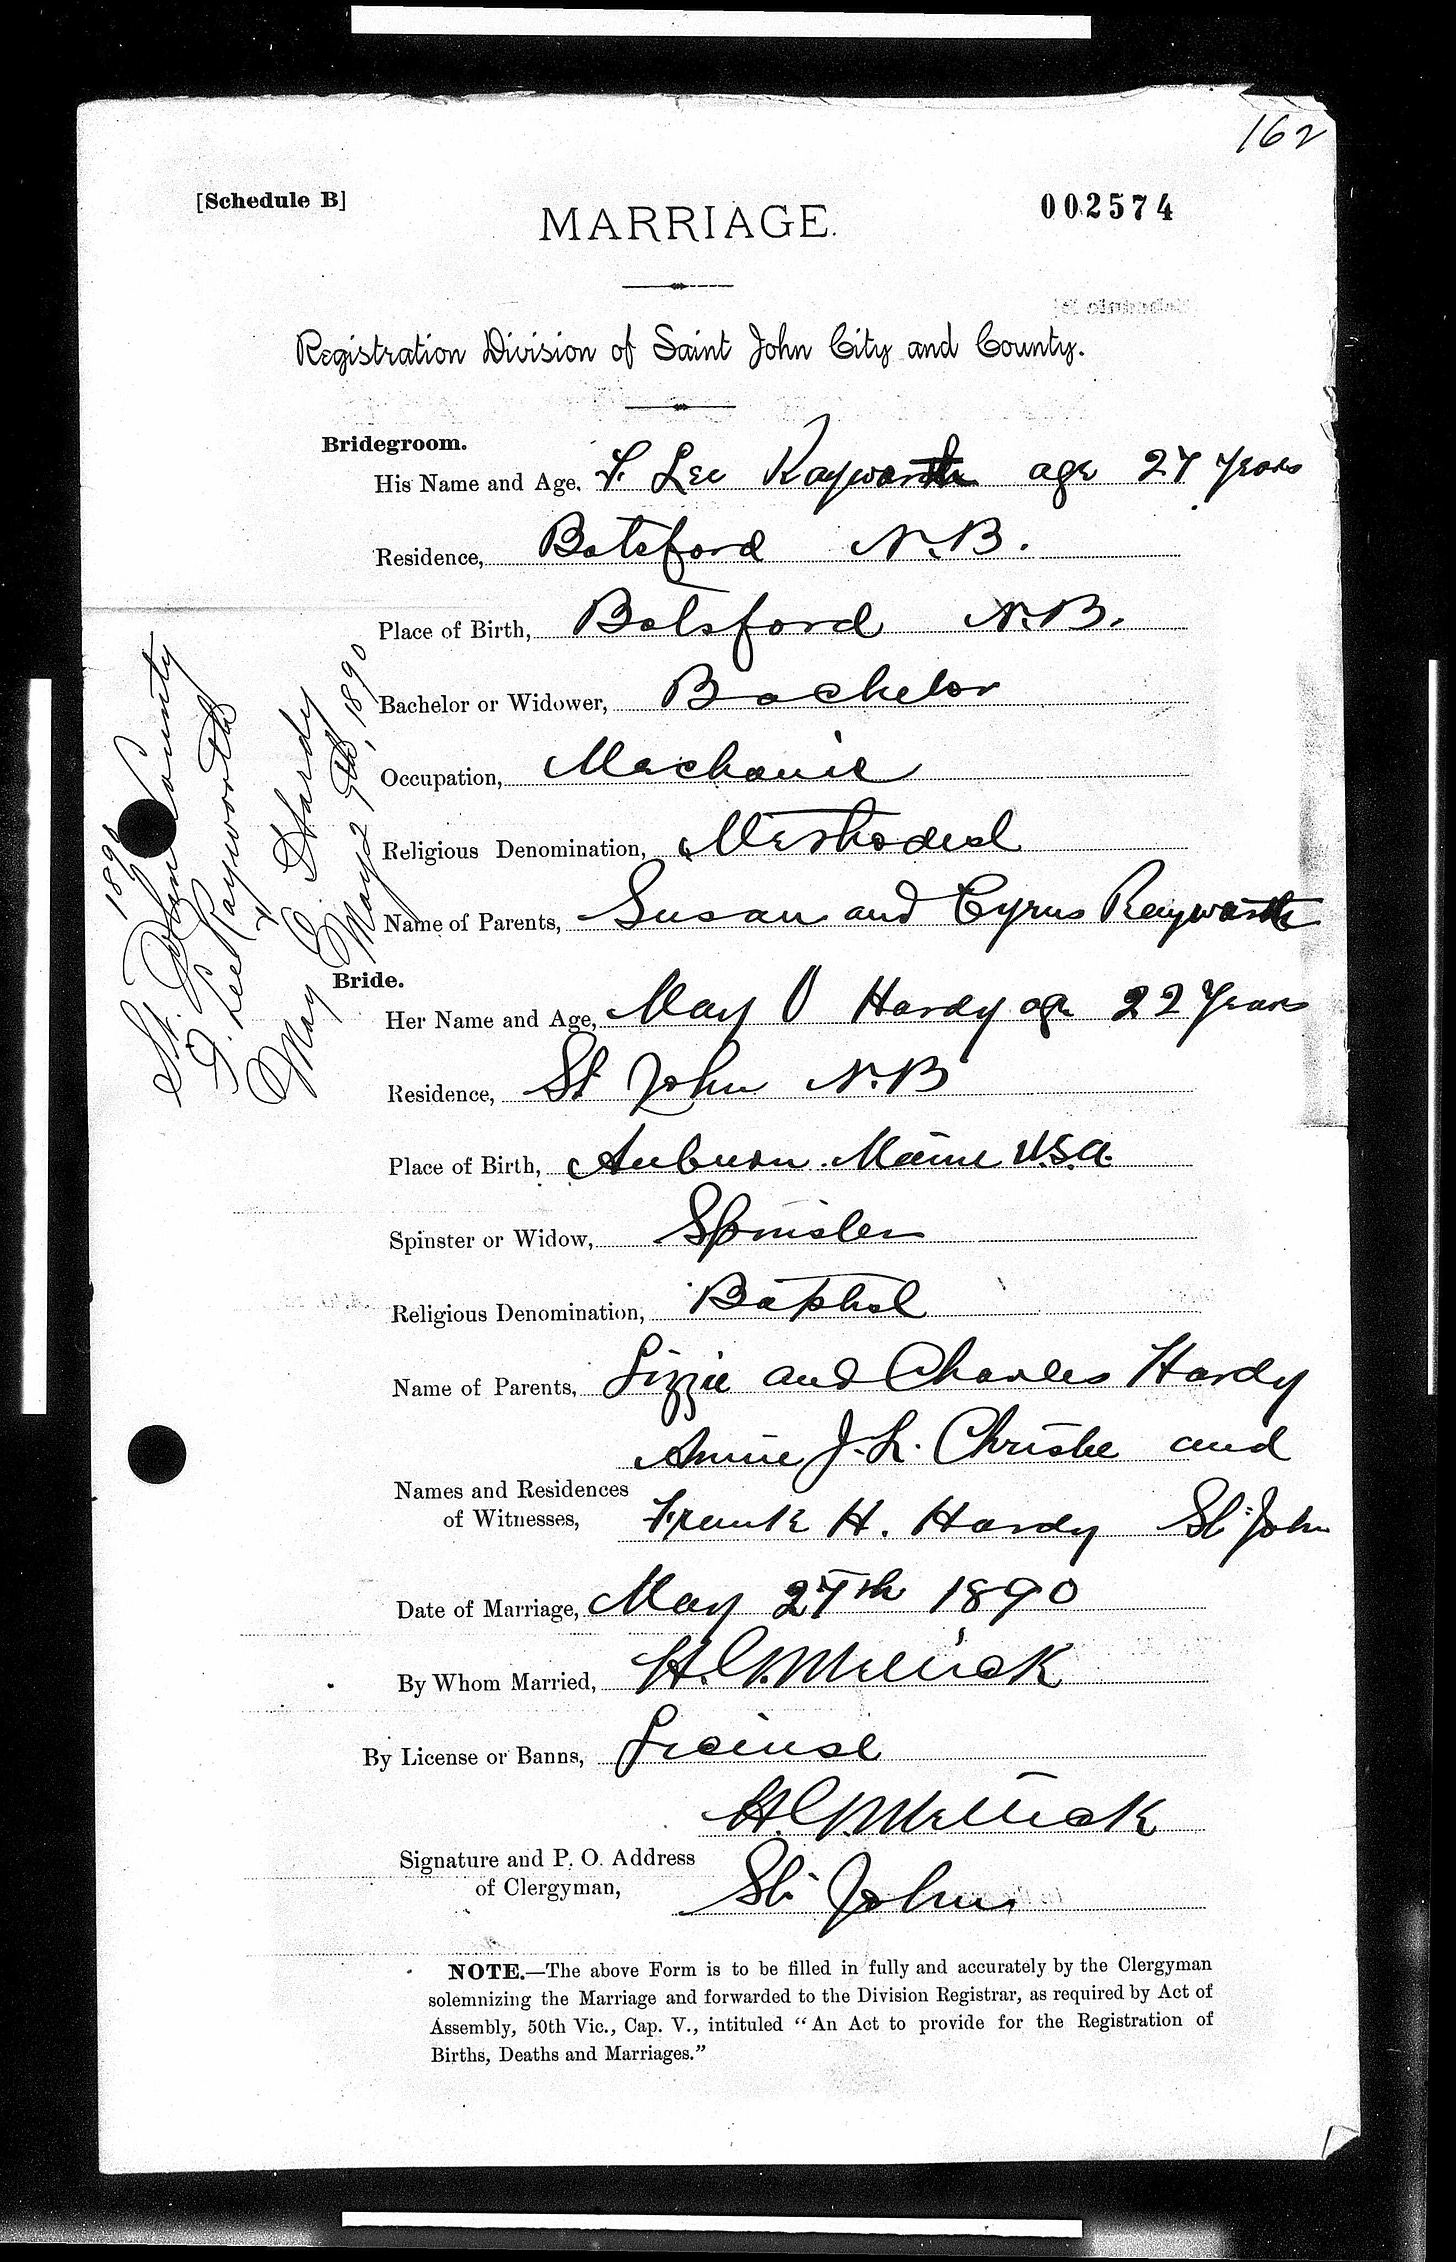 162
[Schedule B]
002574
MARRIAGE.
Registration Division of Saint John City and County.
Bridegroom.
His Name and Age. F. Lee Rayworth age 27 years
Residence, Botsford N.B.
Place of Birth, Botsford N.B.
Bachelor or Widower, Bachelor
Occupation, Mechanic
Religious Denomination, Methodist
Name of Parents, Susan and Cyrus Rayworth
Bride.
Her Name and Age, May O Hardy age 22 years
Residence, St John N.B
Place of Birth, Auburn. Maine U.S.A.
Spinster or Widow, Spinster
Religious Denomination, Baptist
Name of Parents, Lizzie and Charles Hardy
Annie J. L. Christie and
Names and Residences
of Witnesses,
Frank H. Hardy St. John
Date of Marriage, May 27th 1890
By Whom Married, H. G. Mellick
By License or Banns, License
H. G. Mellick
Signature and P. O. Address
of Clergyman,
St. John.
NOTE.—The above Form is to be filled in fully and accurately by the Clergyman
solemnizing the Marriage and forwarded to the Division Registrar, as required by Act of
Assembly, 50th Vic., Cap. V., intituled “An Act to provide for the Registration of
Births, Deaths and Marriages.”
1890
St. John County
F. Lee Rayworth
&
May E. Hardy
May 27th, 1890